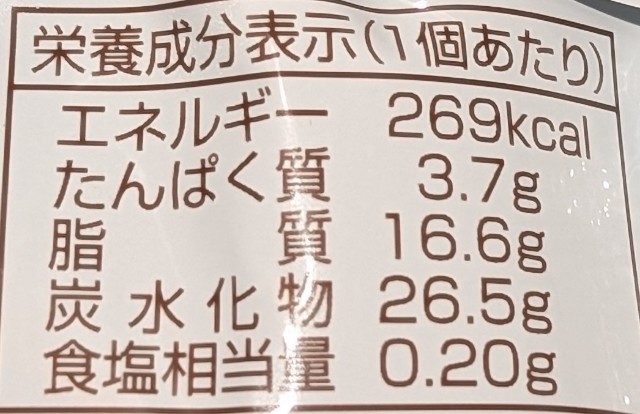 栄養成分表示(1個あたり)
エネルギー 269kcal
たんぱく質 3.7g
脂質 16.6g
炭水化物 26.5g
食塩相当量 0.20g